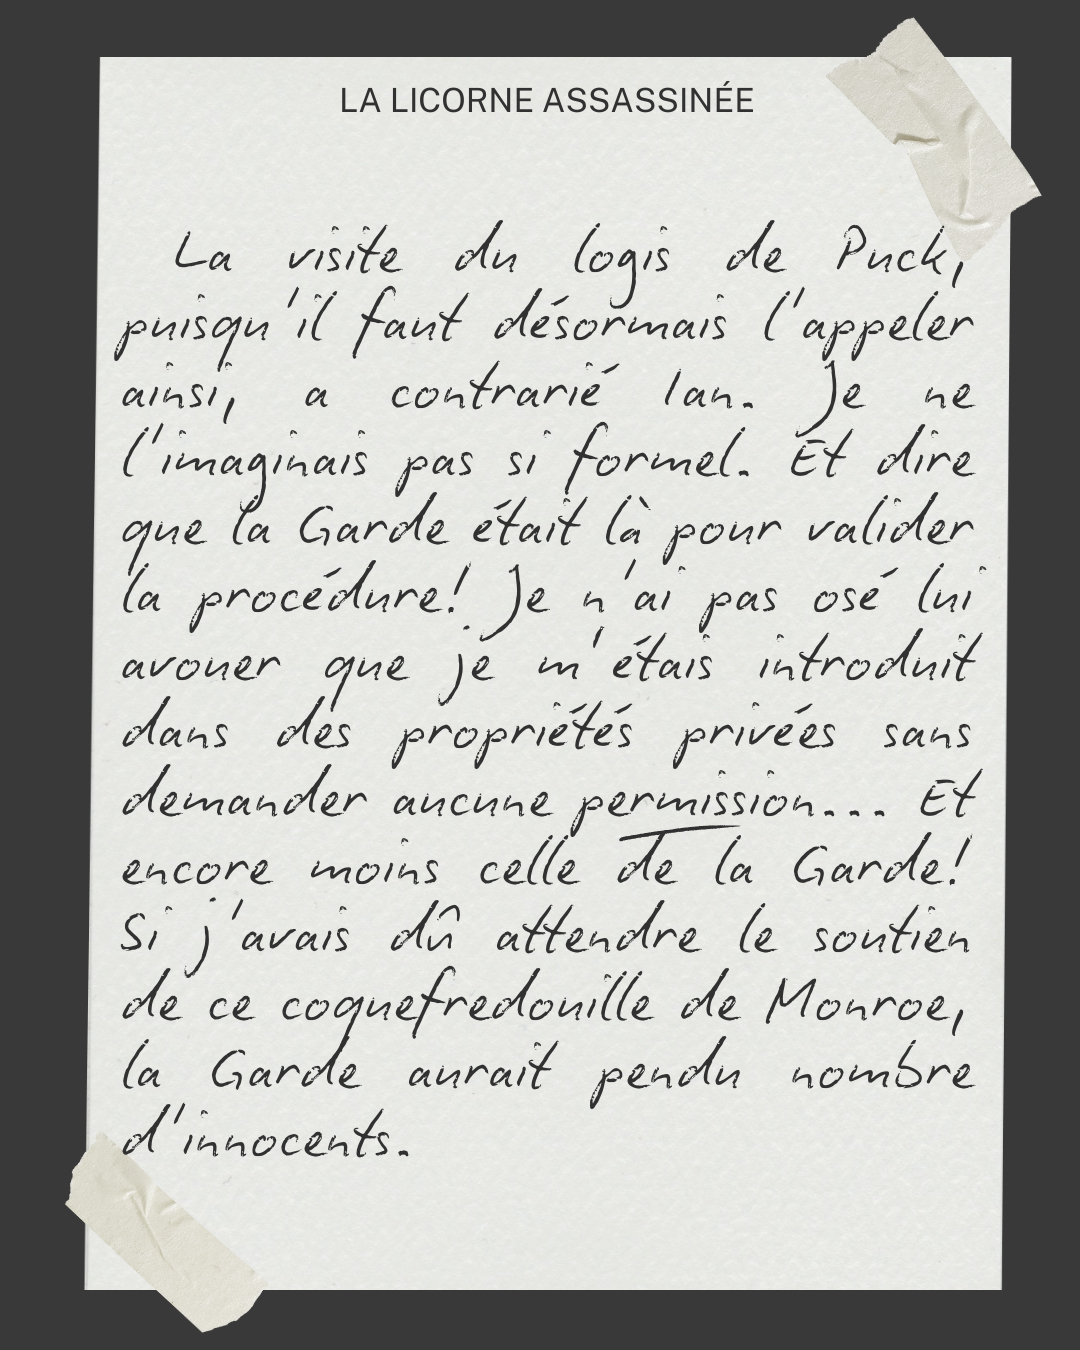 LA LICORNE ASSASSINÉE
La visite du logis de Puck,
puisqu'il faut désormais l'appeler
ainsi, a contrarié Ian. Je ne
l'imaginais pas si formel. Et dire
que la Garde était là pour valider
la procédure! Je n'ai pas osé lui
avouer que je m'étais introduit
dans des propriétés privées sans
demander aucune permission... Et
encore moins celle de la Garde!
Si j'avais dû attendre le soutien
de ce coquefredouille de Monroe,
la Garde aurait pendu nombre
d'innocents.